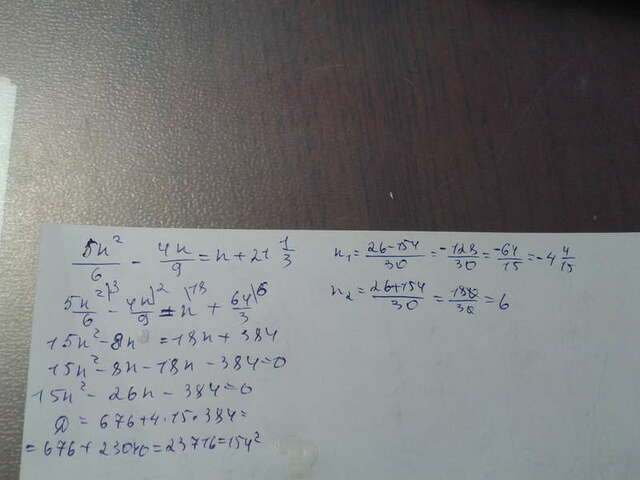 5n²/6 - 4n/9 = n + 21 1/3
5n²\3/6 - 4n\2/9 = n\18 + 64\6/3
15n² - 8n = 18n + 384
15n² - 8n - 18n - 384 = 0
15n² - 26n - 384 = 0
D = 676 + 4·15·384 =
= 676 + 23040 = 23716 = 154²
n₁ = 26-154/30 = -128/30 = -64/15 = -4 4/15
n₂ = 26+154/30 = 180/30 = 6